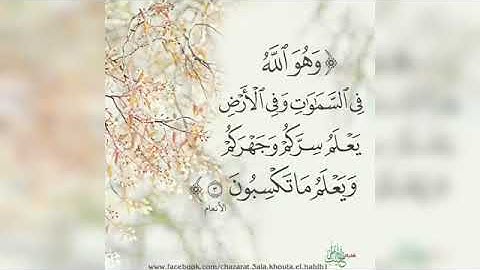 ﴿ وَهُوَ ٱللَّهُ
فِي ٱلسَّمَٰوَٰتِ وَفِي ٱلْأَرْضِ
يَعْلَمُ سِرَّكُمْ وَجَهْرَكُمْ
وَيَعْلَمُ مَا تَكْسِبُونَ ٣ ﴾
الأنعام
www.facebook.com/chazarat.3ala.khouta.el.habib1